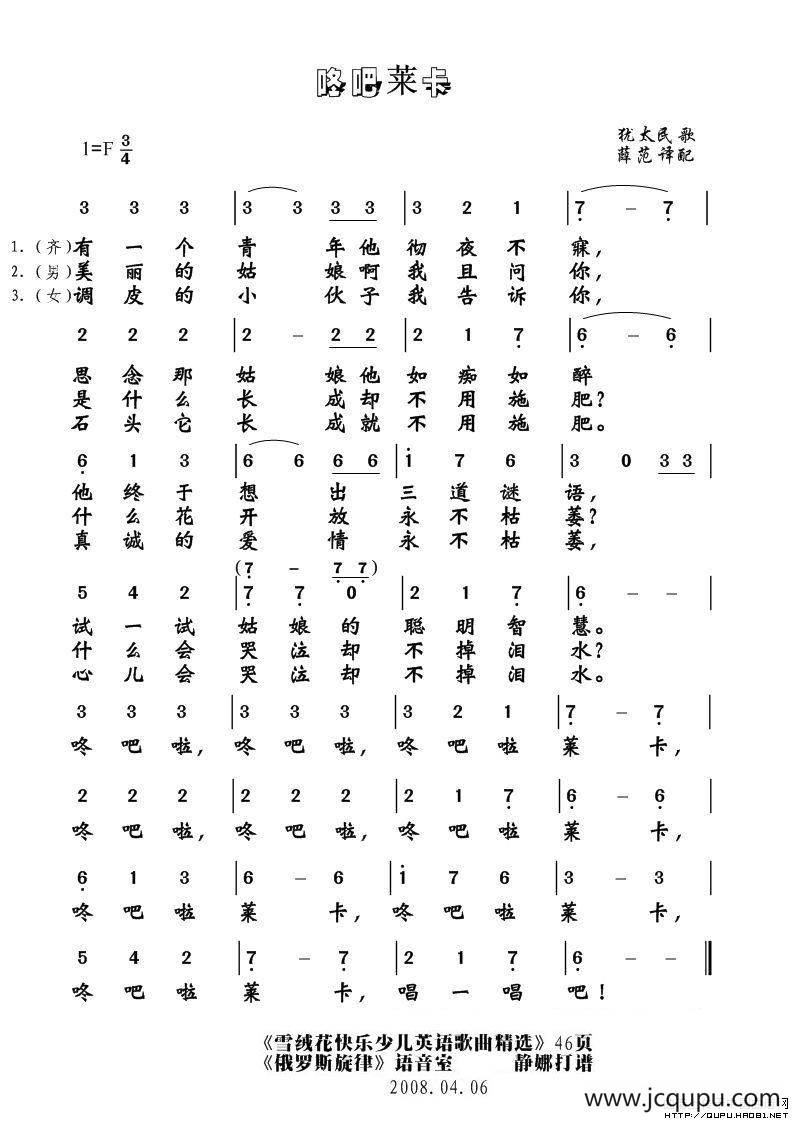 咚吧莱卡
1=F 3/4
犹太民歌
薛范译配
3 3 3 | 3 3 3 3 | 3 2 1 | 7 – 7 |
1.(齐)有一个青年他彻夜不寐,
2.(男)美丽的姑娘啊我且问你,
3.(女)调皮的小伙子我告诉你,
2 2 2 | 2 – 2 2 | 2 1 7 | 6 – 6 |
思念那姑娘他如痴如醉
是什么长成却不用施肥?
石头它长成就不用施肥。
6 1 3 | 6 6 6 6 | 1 7 6 | 3 0 3 3 |
他终于想出三道谜语,
什么花开放永不枯萎?
真诚的爱情永不枯萎,
(7 – 7 7)
5 4 2 | 7 7 0 | 2 1 7 | 6 – – |
试一试姑娘的聪明智慧。
什么会哭泣却不掉泪水?
心儿会哭泣却不掉泪水。
3 3 3 | 3 3 3 | 3 2 1 | 7 – 7 |
咚吧啦,咚吧啦,咚吧啦莱卡,
2 2 2 | 2 2 2 | 2 1 7 | 6 – 6 |
咚吧啦,咚吧啦,咚吧啦莱卡,
6 1 3 | 6 – 6 | 1 7 6 | 3 – 3 |
咚吧啦莱卡,咚吧啦莱卡,
5 4 2 | 7 – 7 | 2 1 7 | 6 – – ‖
咚吧啦莱卡,唱一唱吧!
《雪绒花快乐少儿英语歌曲精选》46页
《俄罗斯旋律》语音室 静娜打谱
2008.04.06
www.jcqupu.com
HTTP://QUPU.HAO81.NET